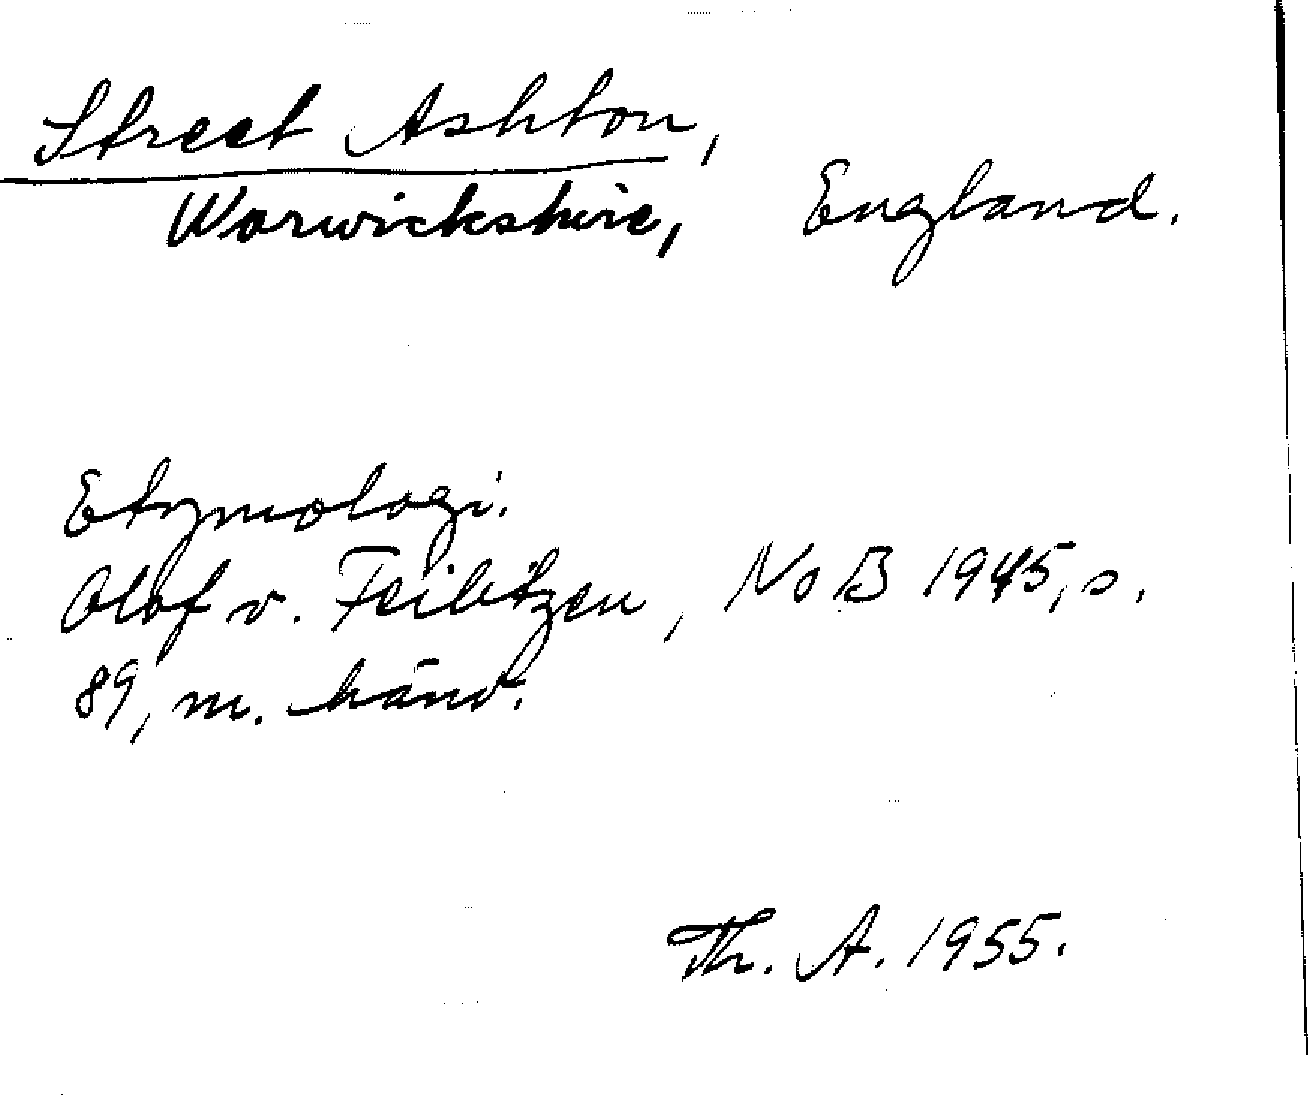 Street Ashton,
Warwickshire, England.
Etymologi.
Olof v. Feilitzen, NoB 1945, s.
89, m. hänv.
Th. A. 1955.